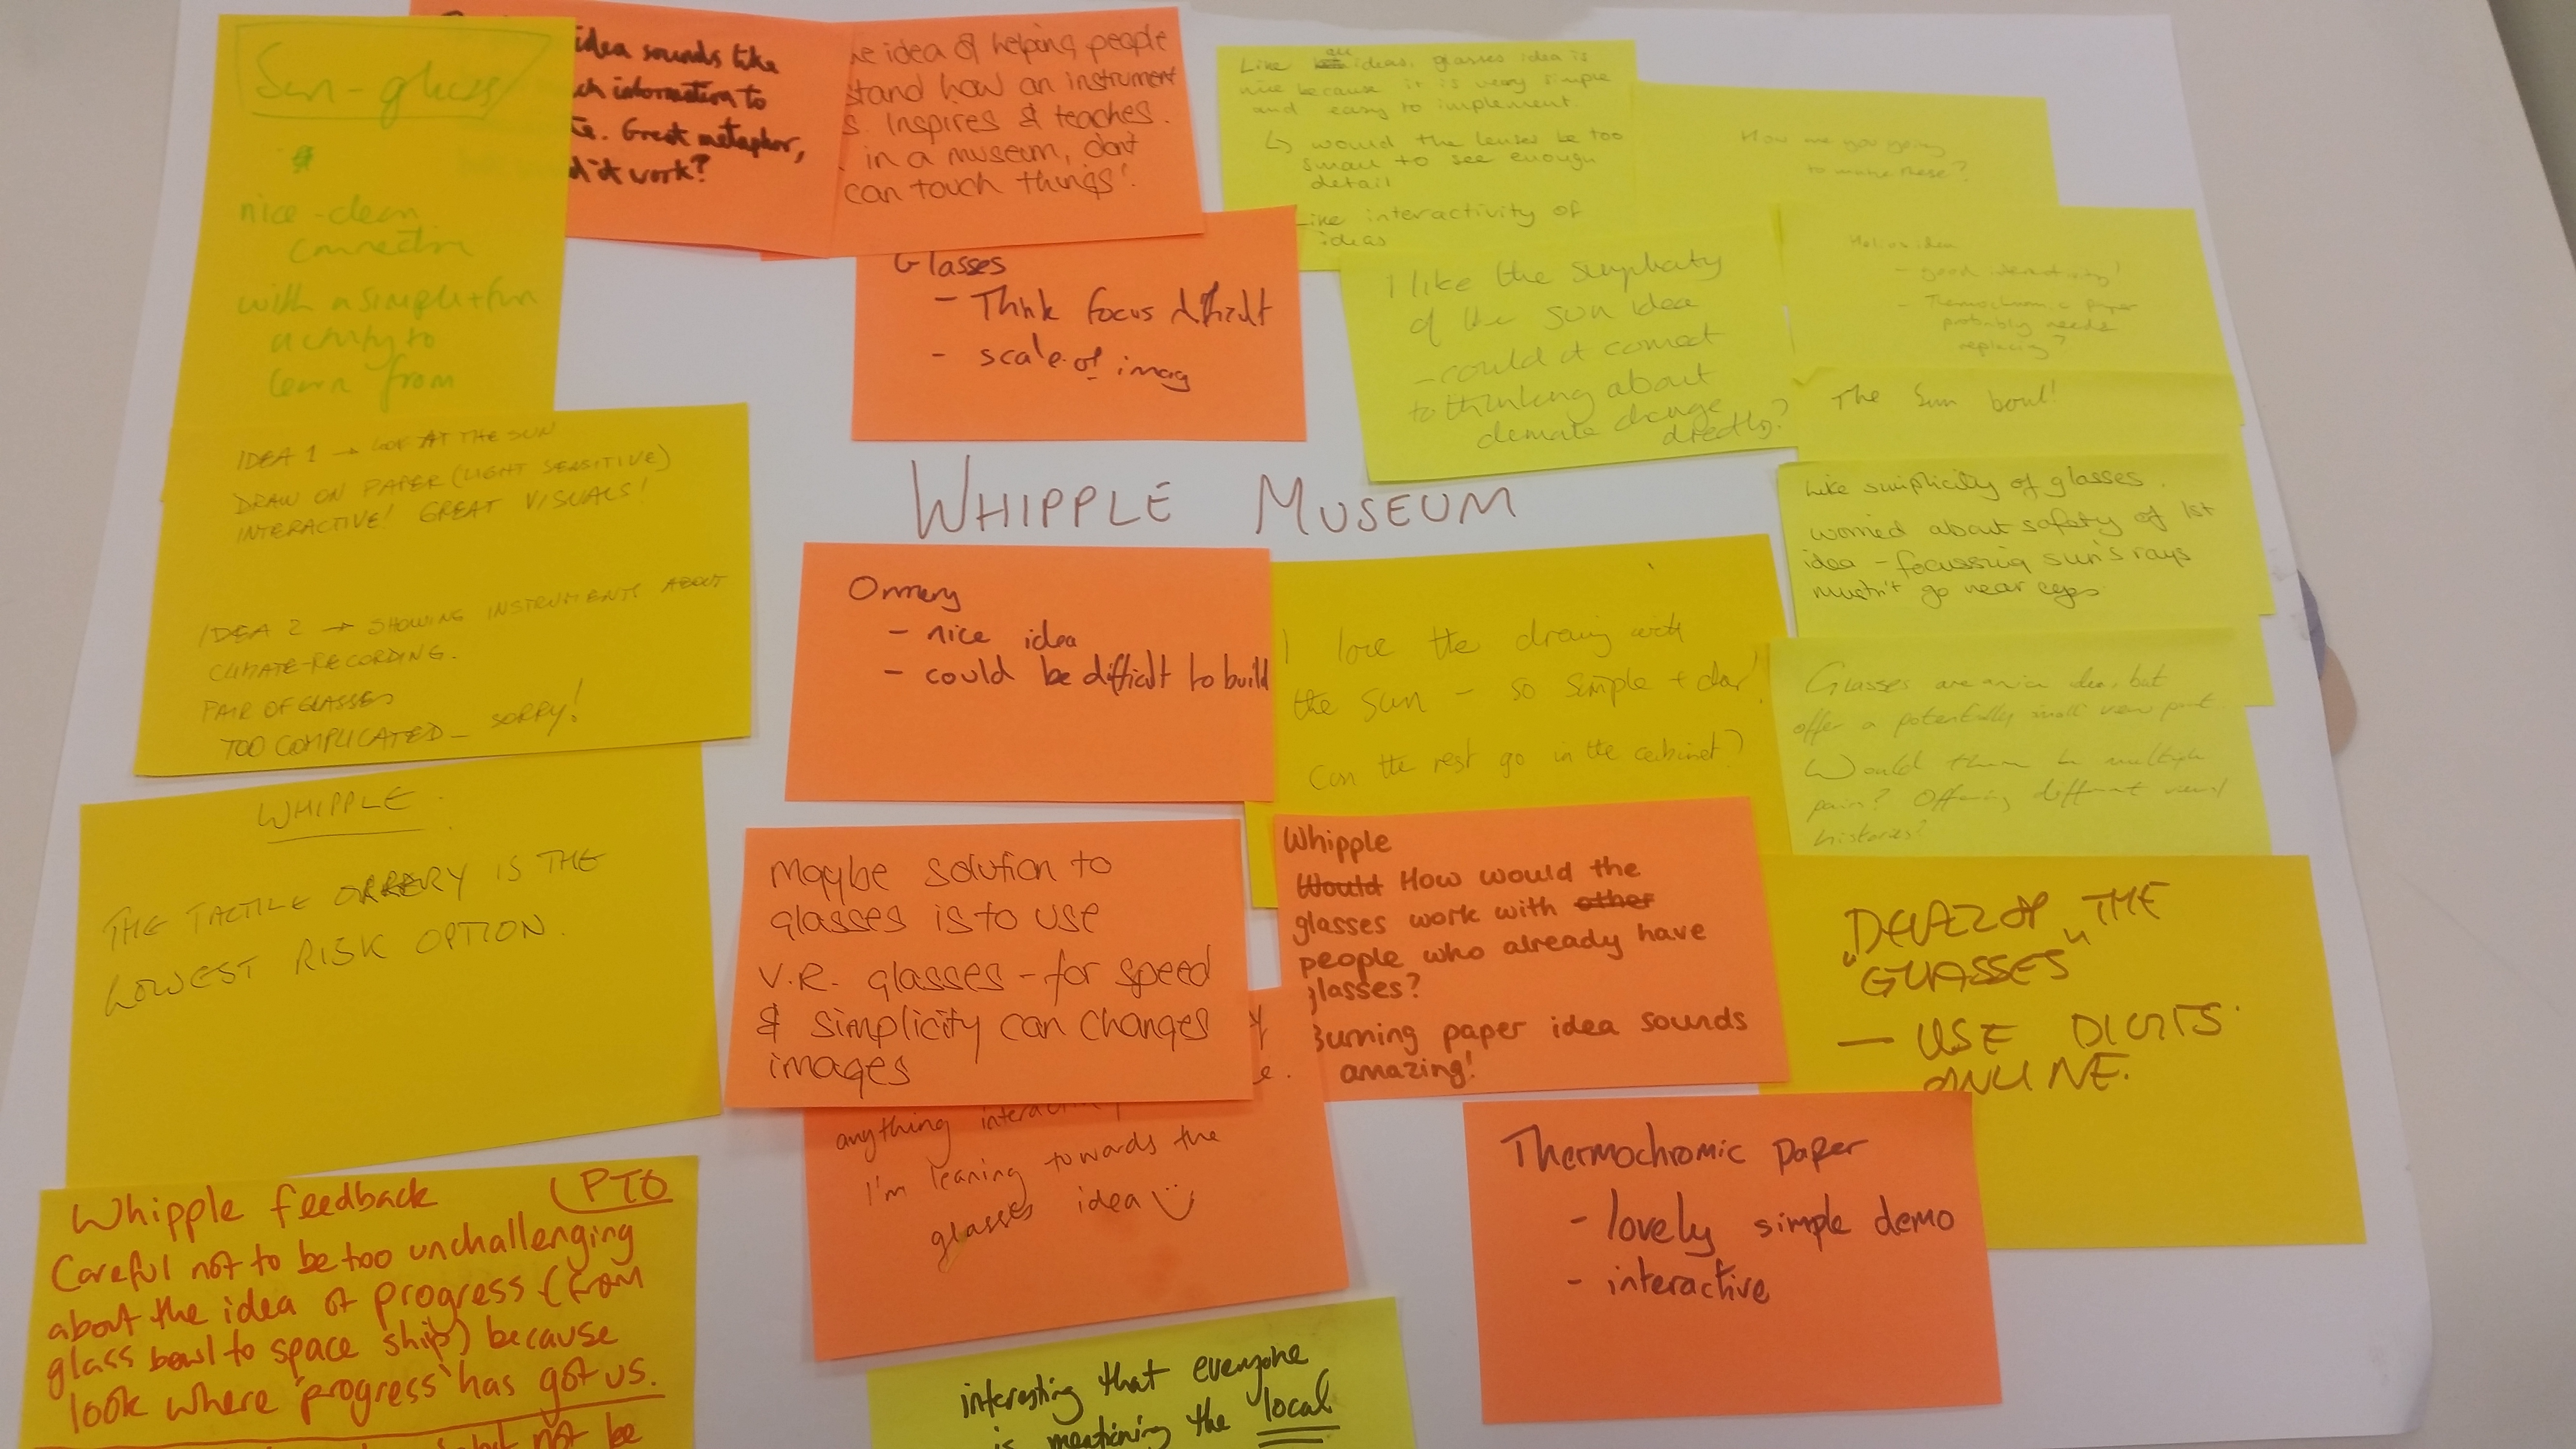 Sun-glass
nice - clean
connection
with a simple + fun
activity to
learn from
idea sounds like
information to
Great metaphor,
it work?
idea of helping people
how an instrument
Inspires & teaches.
in a museum, dont
can touch things!
Like all ideas, glasses idea is
nice because it is very simple
and easy to implement.
↳ would the lenses be too
small to see enough
detail
Like interactivity of
ideas
How are you going
to make these?
Glasses
- Think focus difficult
- scale of imag
I like the simplicity
of the sun idea
- could it connect
to thinking about
climate change
directly?
Helios idea
- good interactivity!
- Thermochromic paper
probably needs
replacing?
The Sun bowl!
IDEA 1 → LOOK AT THE SUN
DRAW ON PAPER (LIGHT SENSITIVE)
INTERACTIVE! GREAT VISUALS!
IDEA 2 → SHOWING INSTRUMENTS ABOUT
CLIMATE-RECORDING.
PAIR OF GLASSES
TOO COMPLICATED _ SORRY!
WHIPPLE MUSEUM
Like simplicity of glasses.
worried about safety of 1st
idea - focussing sun's rays
mustn't go near eyes
Orrery
- nice idea
- could be difficult to build
I love the drawing with
the sun - so simple + clear!
Can the rest go in the cabinet?
Glasses are a nice idea, but
offer a potentially small view point.
Would there be multiple
pairs? Offering different
histories?
WHIPPLE.
THE TACTILE ORRERY IS THE
LOWEST RISK OPTION.
Maybe solution to
glasses is to use
V.R. glasses - for speed
& simplicity can changes
images
Whipple
Would How would the
glasses work with other
people who already have
glasses?
Burning paper idea sounds
amazing!
DEVELOP THE
"GLASSES"
- USE DIGITS
ONLINE.
anything
I'm leaning towards the
glasses idea
Thermochromic paper
- lovely simple demo
- interactive
Whipple feedback (PTO
Careful not to be too unchallenging
about the idea of progress (from
glass bowl to space ship) because
look where 'progress' has got us.
not be
interesting that everyone
is mentioning the local